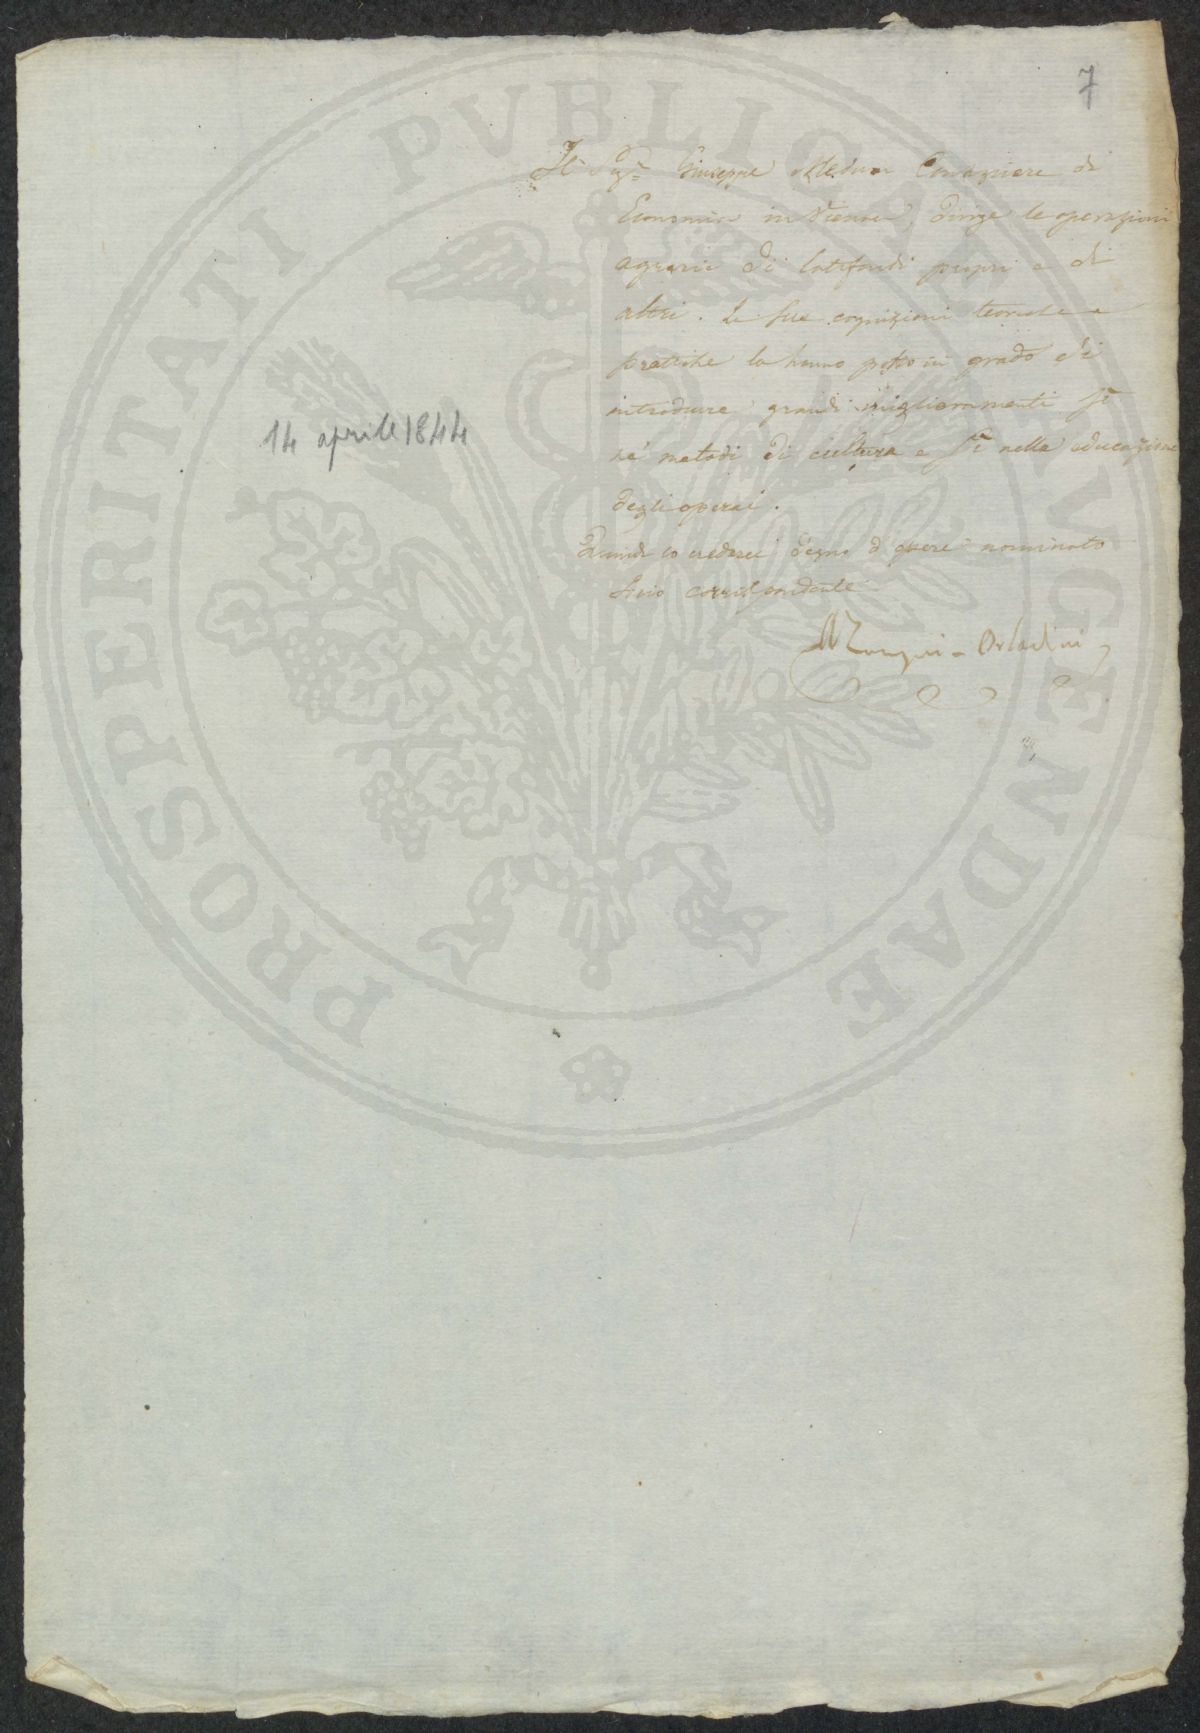 7
Il Sig.r Giuseppe Consigliere di
Economia in Vienna, dirige le operazioni
agrarie di latifondi propri e di
altri. Le sue cognizioni teoriche e
pratiche lo hanno posto in grado di
introdurre grandi miglioramenti sì
ne' metodi di cultura e sì nella educazione
degli operai.
Quindi lo crederei degno d'essere nominato
Socio corrispondente
14 aprile 1844
Orlandini
PROSPERITATI PVBLICAE AVGENDAE